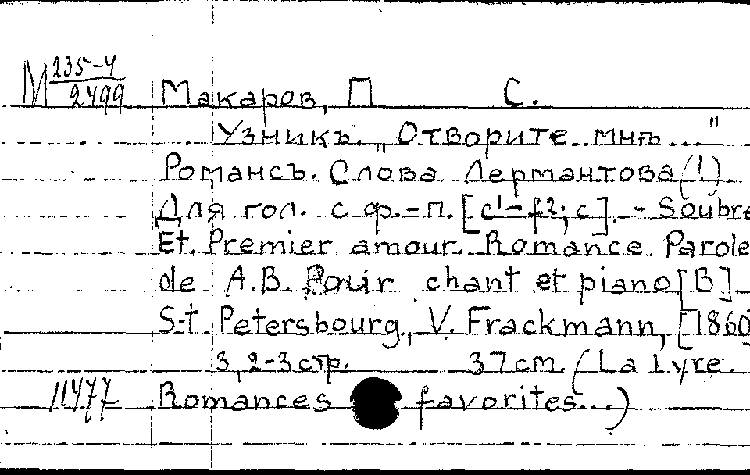 М 235-4/2499 Макаров, П С.
Узникъ. „Отворите мнѣ..."
Романсъ. Слова Лермантова(!)
Для гол. с ф.-п. [c¹-f2; c]. - Soubre
Et. Premier amour. Romance Parole
de A.B. Pour chant et piano [B]
S-t. Petersbourg, V. Frackmann, [1860
3, 2-3 стр. 37 cm. (La Lyre.
11477 Romances favorites...)